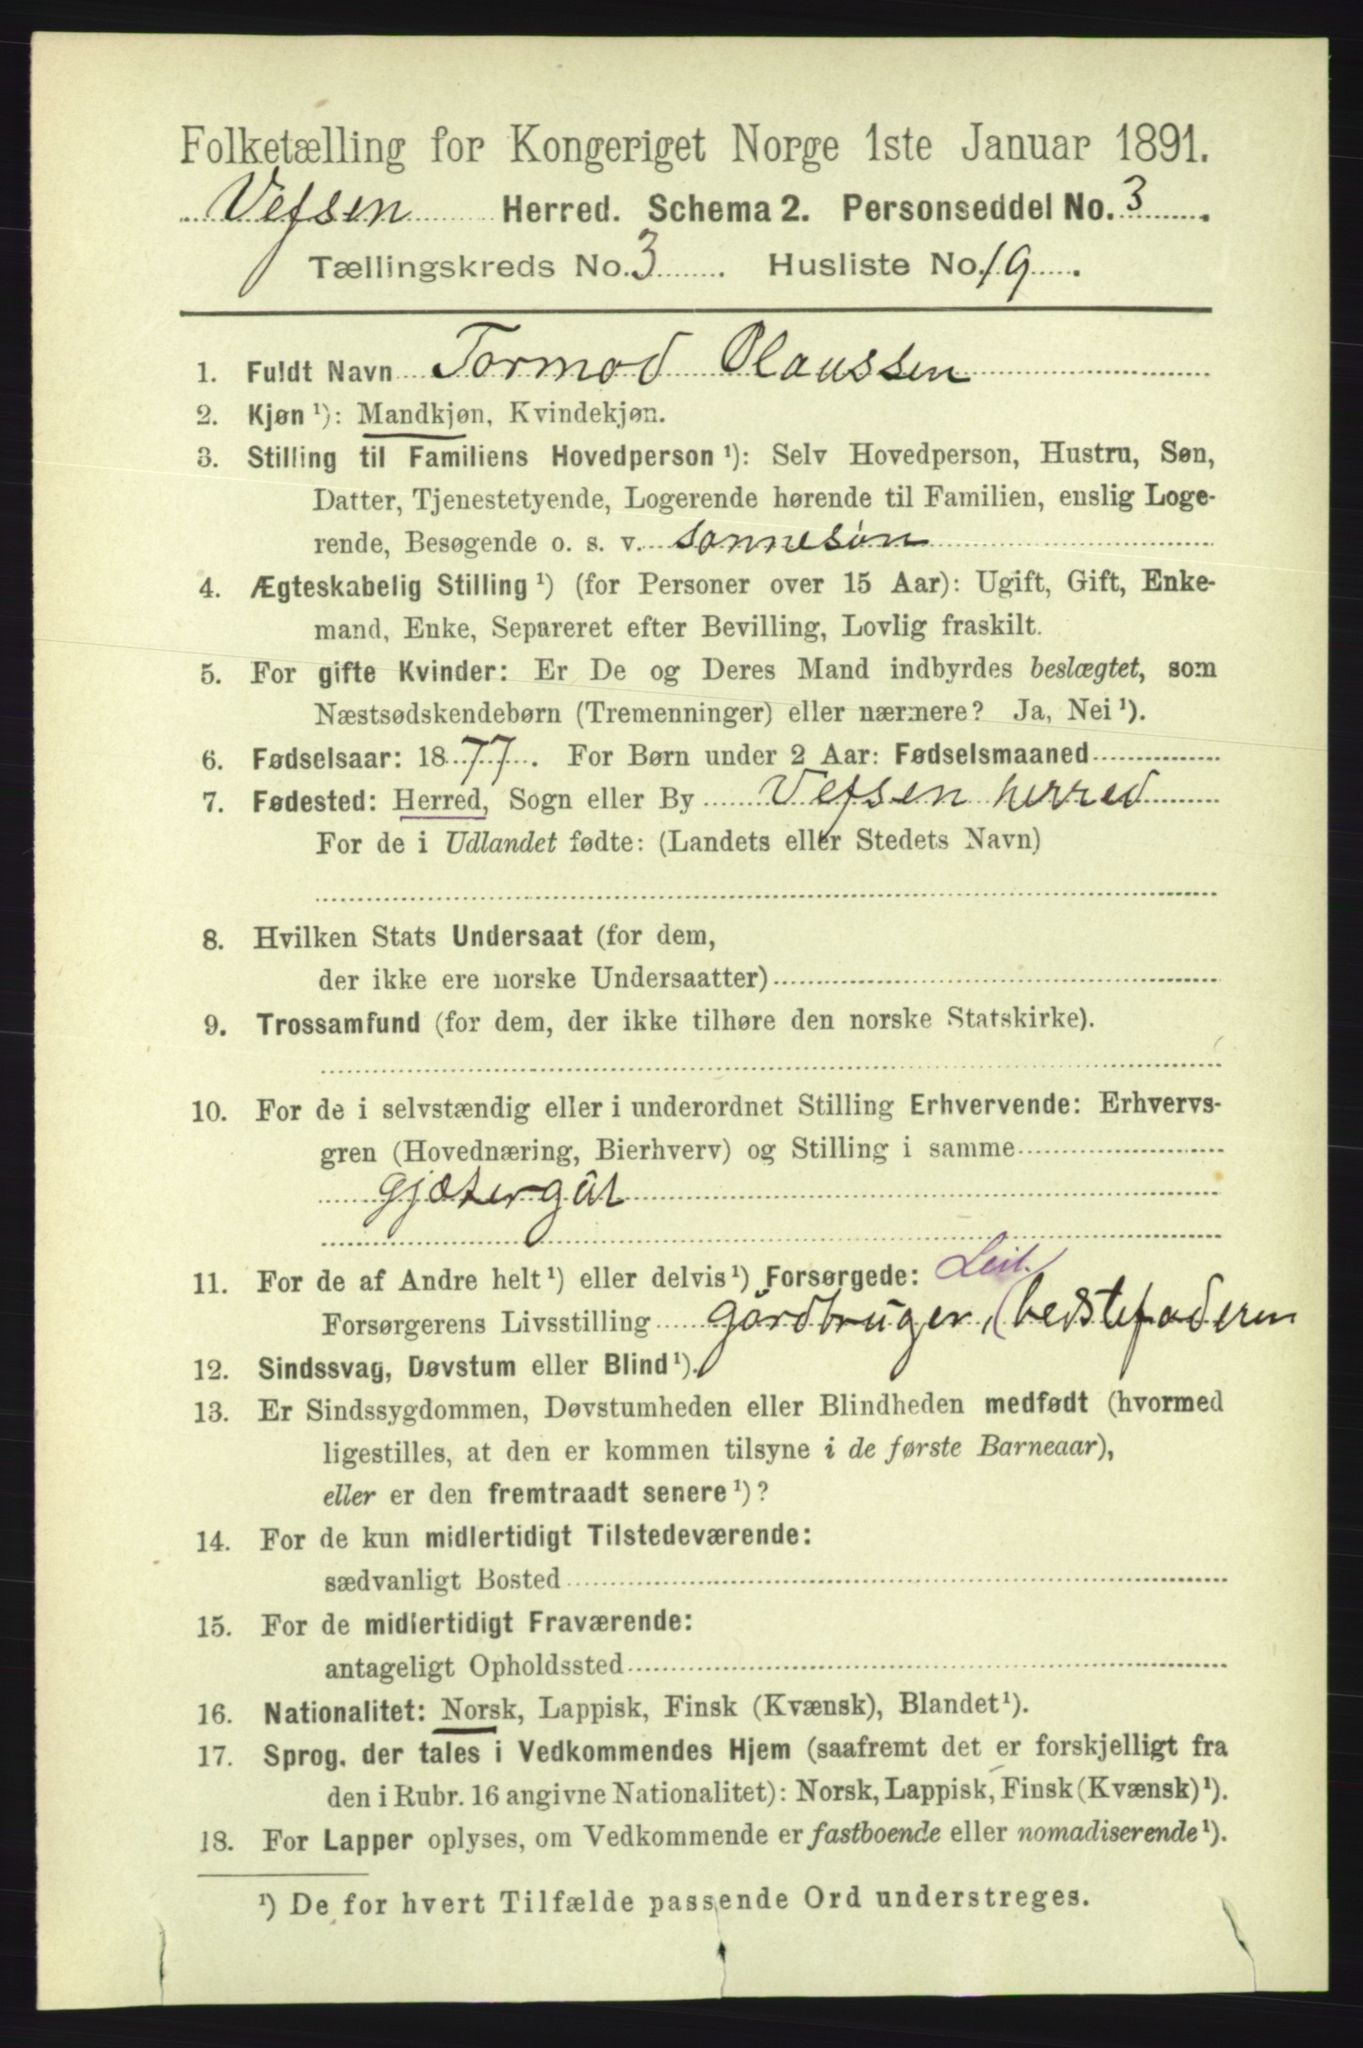 Folketælling for Kongeriget Norge 1ste Januar 1891.
Vefsen Herred. Schema 2. Personseddel No. 3.
Tællingskreds No. 3. Husliste No. 19.
1. Fuldt Navn Tormod Olaussen
2. Kjøn ¹): Mandkjøn, Kvindekjøn.
3. Stilling til Familiens Hovedperson ¹): Selv Hovedperson, Hustru, Søn,
Datter, Tjenestetyende, Logerende hørende til Familien, enslig Loge-
rende, Besøgende o. s. v. sønnesøn
4. Ægteskabelig Stilling ¹) (for Personer over 15 Aar): Ugift, Gift, Enke-
mand, Enke, Separeret efter Bevilling, Lovlig fraskilt.
5. For gifte Kvinder: Er De og Deres Mand indbyrdes beslægtet, som
Næstsødskendebørn (Tremenninger) eller nærmere? Ja, Nei ¹).
6. Fødselsaar: 1877. For Børn under 2 Aar: Fødselsmaaned
7. Fødested: Herred, Sogn eller By Vefsen herred
For de i Udlandet fødte: (Landets eller Stedets Navn)
8. Hvilken Stats Undersaat (for dem,
der ikke ere norske Undersaatter)
9. Trossamfund (for dem, der ikke tilhøre den norske Statskirke).
10. For de i selvstændig eller i underordnet Stilling Erhvervende: Erhvervs-
gren (Hovednæring, Bierhverv) og Stilling i samme
gjætergut
11. For de af Andre helt ¹) eller delvis ¹) Forsørgede: Leil.
Forsørgerens Livsstilling gårdbruger, (bedstefaderen
12. Sindssvag, Døvstum eller Blind ¹).
13. Er Sindssygdommen, Døvstumheden eller Blindheden medfødt (hvormed
ligestilles, at den er kommen tilsyne i de første Barneaar),
eller er den fremtraadt senere ¹)?
14. For de kun midlertidigt Tilstedeværende:
sædvanligt Bosted
15. For de midlertidigt Fraværende:
antageligt Opholdssted
16. Nationalitet: Norsk, Lappisk, Finsk (Kvænsk), Blandet ¹).
17. Sprog, der tales i Vedkommendes Hjem (saafremt det er forskjelligt fra
den i Rubr. 16 angivne Nationalitet): Norsk, Lappisk, Finsk (Kvænsk) ¹).
18. For Lapper oplyses, om Vedkommende er fastboende eller nomadiserende ¹).
¹) De for hvert Tilfælde passende Ord understreges.